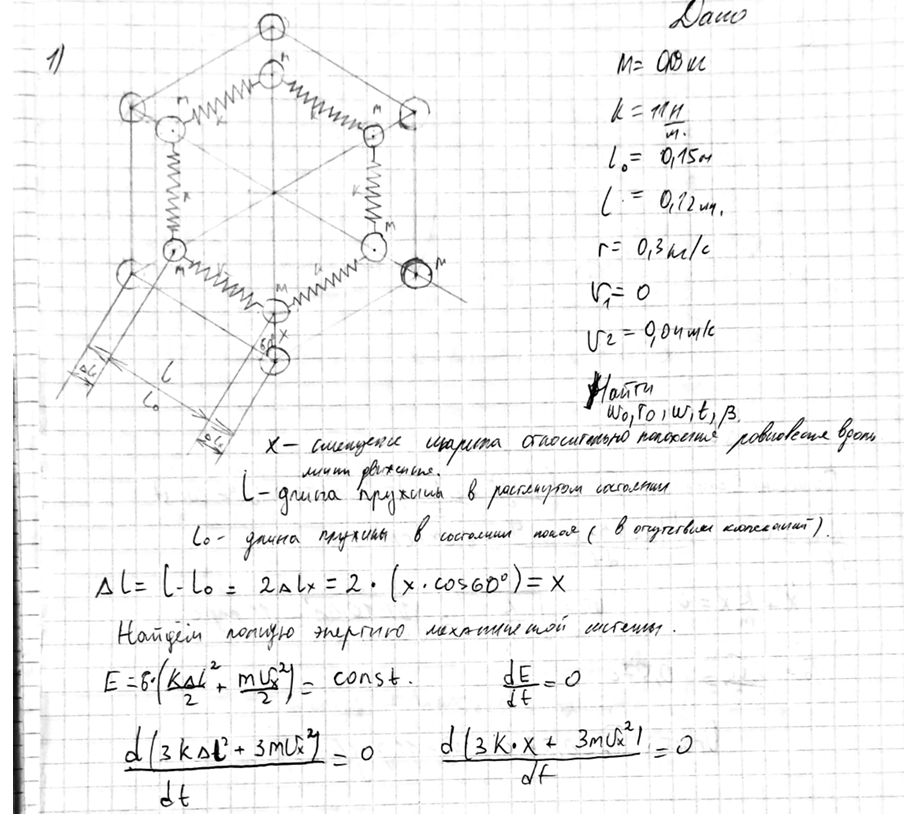 1)
Дано
m = 0,8 кг
k = 11 Н/м.
l₀ = 0,15 м
l = 0,12 м.
r = 0,3 кг/с
V₁ = 0
V₂ = 0,04 м/с
Найти
ω₀, r₀, ω, t, β.
x – смещение шарика относительно положение равновесие вдоль
линии движение.
l – длина пружины в растянутом состоянии
l₀ – длина пружины в состоянии покоя (в отсутствии колебаний).
Δl = l - l₀ = 2Δlx = 2 · (x · cos60°) = x
Найдём полную энергию механической системы.
E = 6·(kΔl²/2 + mVx²/2) = const. dE/dt = 0
d(3kΔl² + 3mVx²)/dt = 0 d(3k·x + 3mVx²)/dt = 0